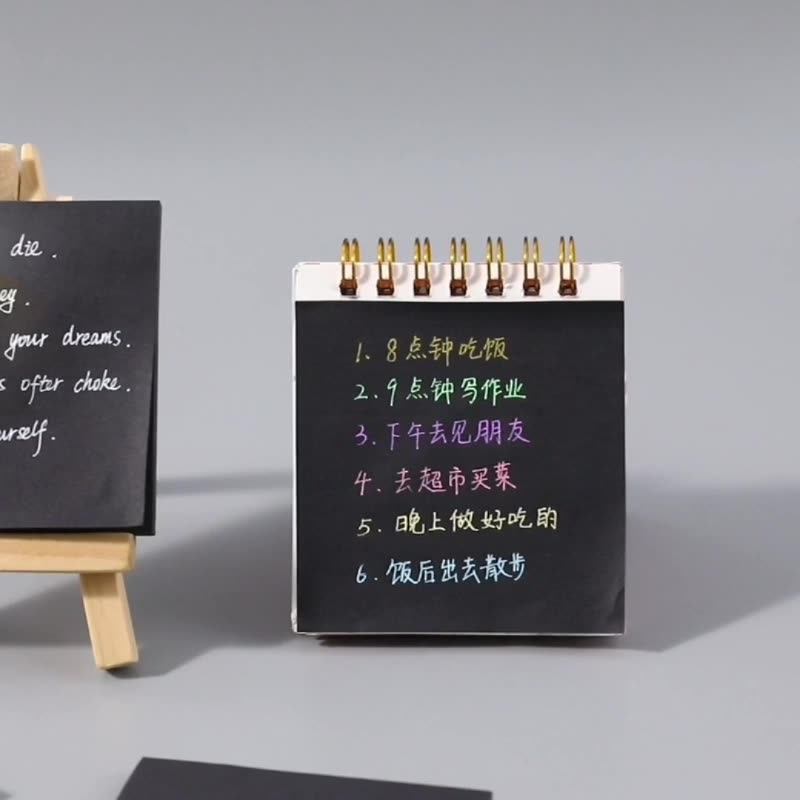 die.
ey.
your dreams.
s ofter choke.
urself.
1. 8点钟吃饭
2. 9点钟写作业
3. 下午去见朋友
4. 去超市买菜
5. 晚上做好吃的
6. 饭后出去散步